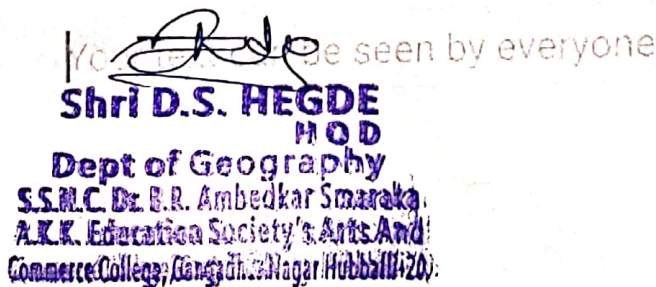 Yo be seen by everyone
Shri D.S. HEGDE
H O D
Dept of Geography
S.S.M.C. Dr. B.R. Ambedkar Smaraka
A.K.K. Education Society's Arts And
Commerce College, Nagar Hubballi-20